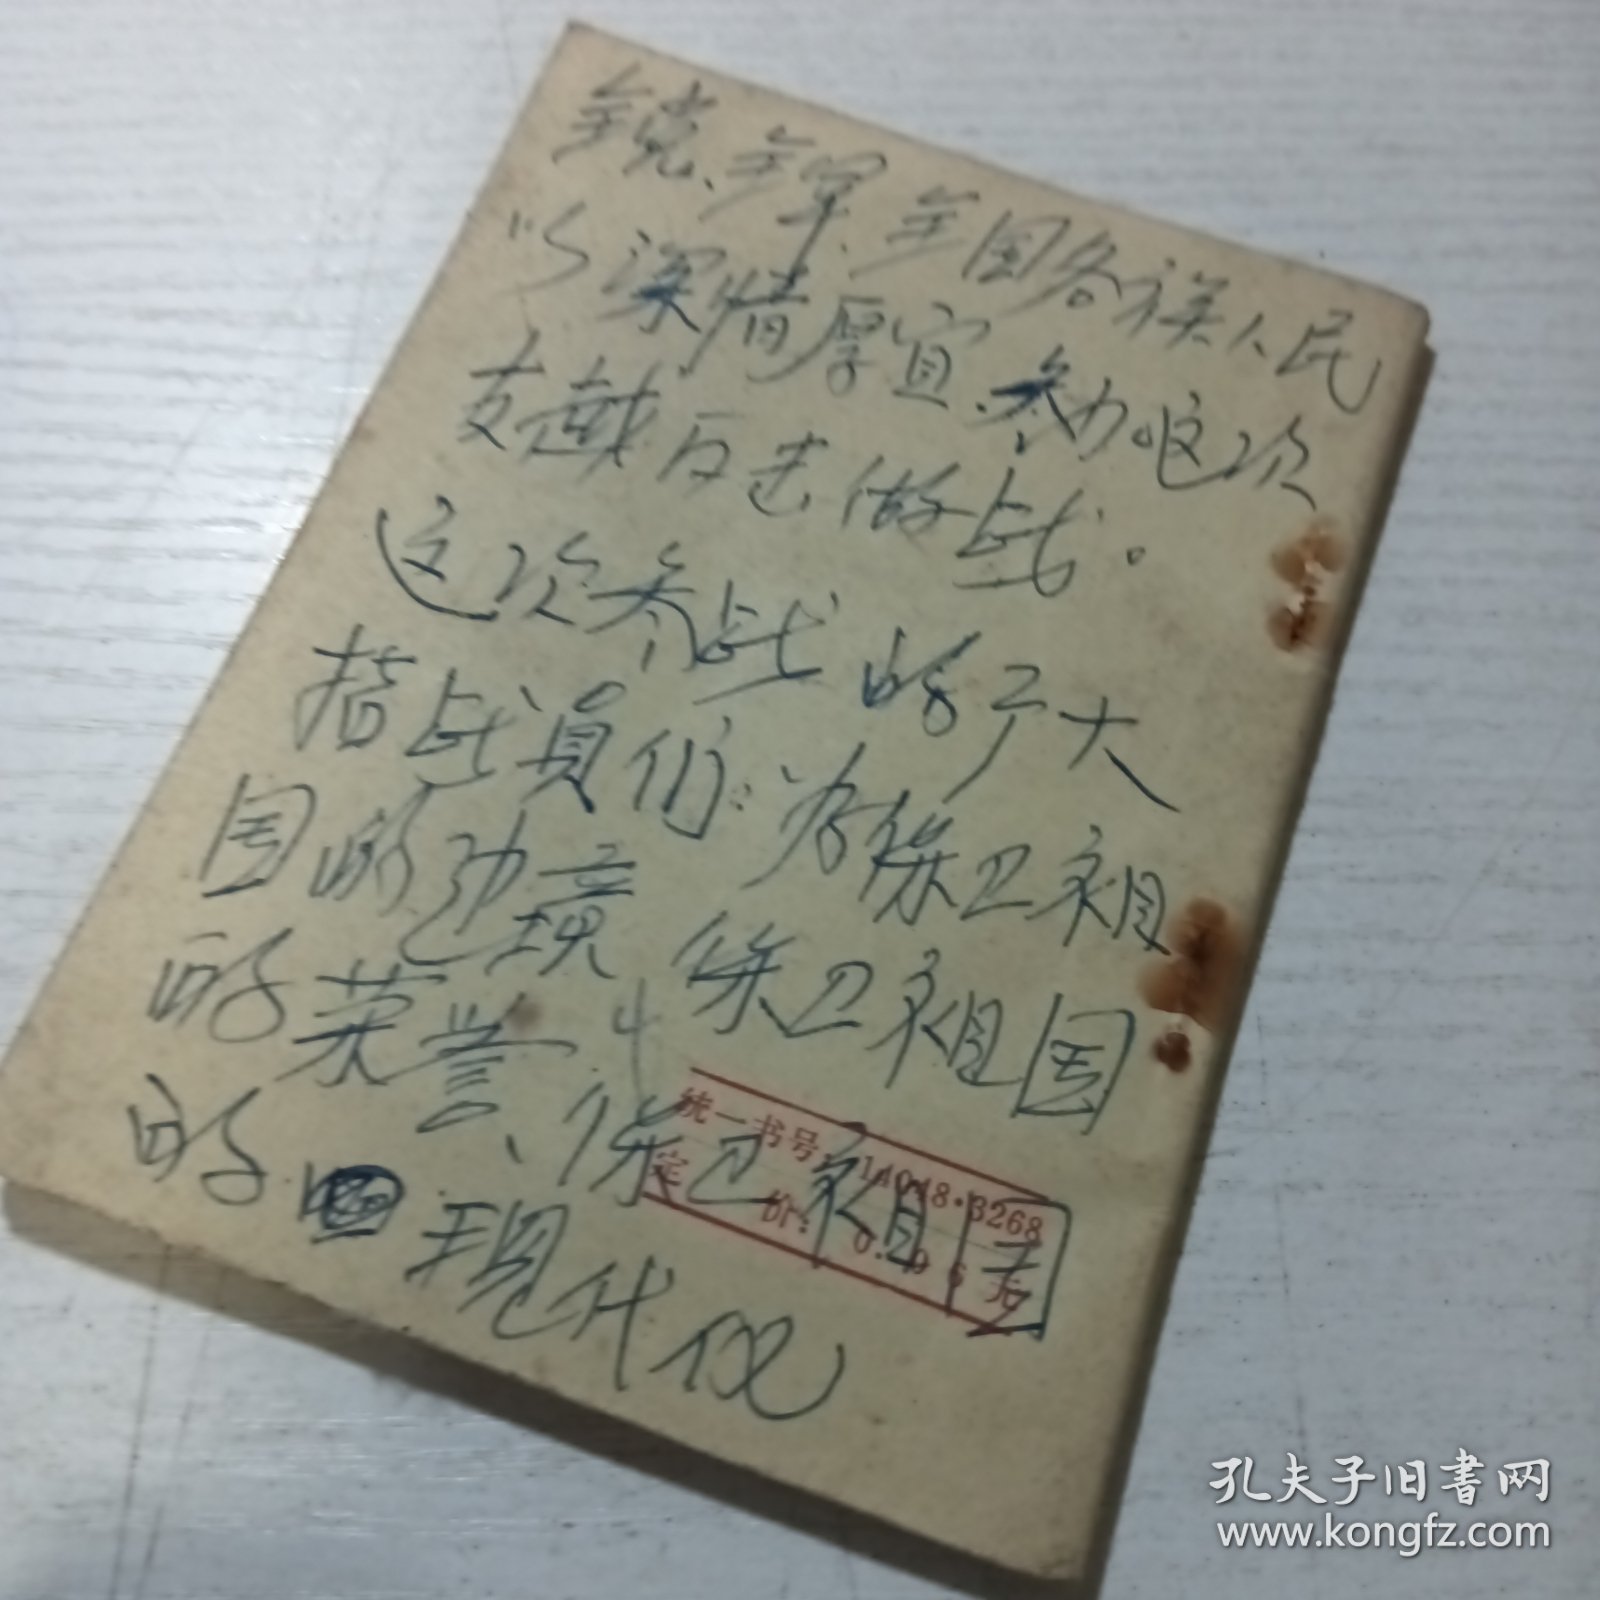 全党、全军、全国各族人民
以深情厚宜、参加这次
支越反击做战。
这次参战的广大
指战員们：为保卫祖
国的边境 保卫祖国
的荣誉、保卫祖国
的 现代化
统一书号：14048·3268
定 价： 0.19 元
孔夫子旧书网
www.kongfz.com